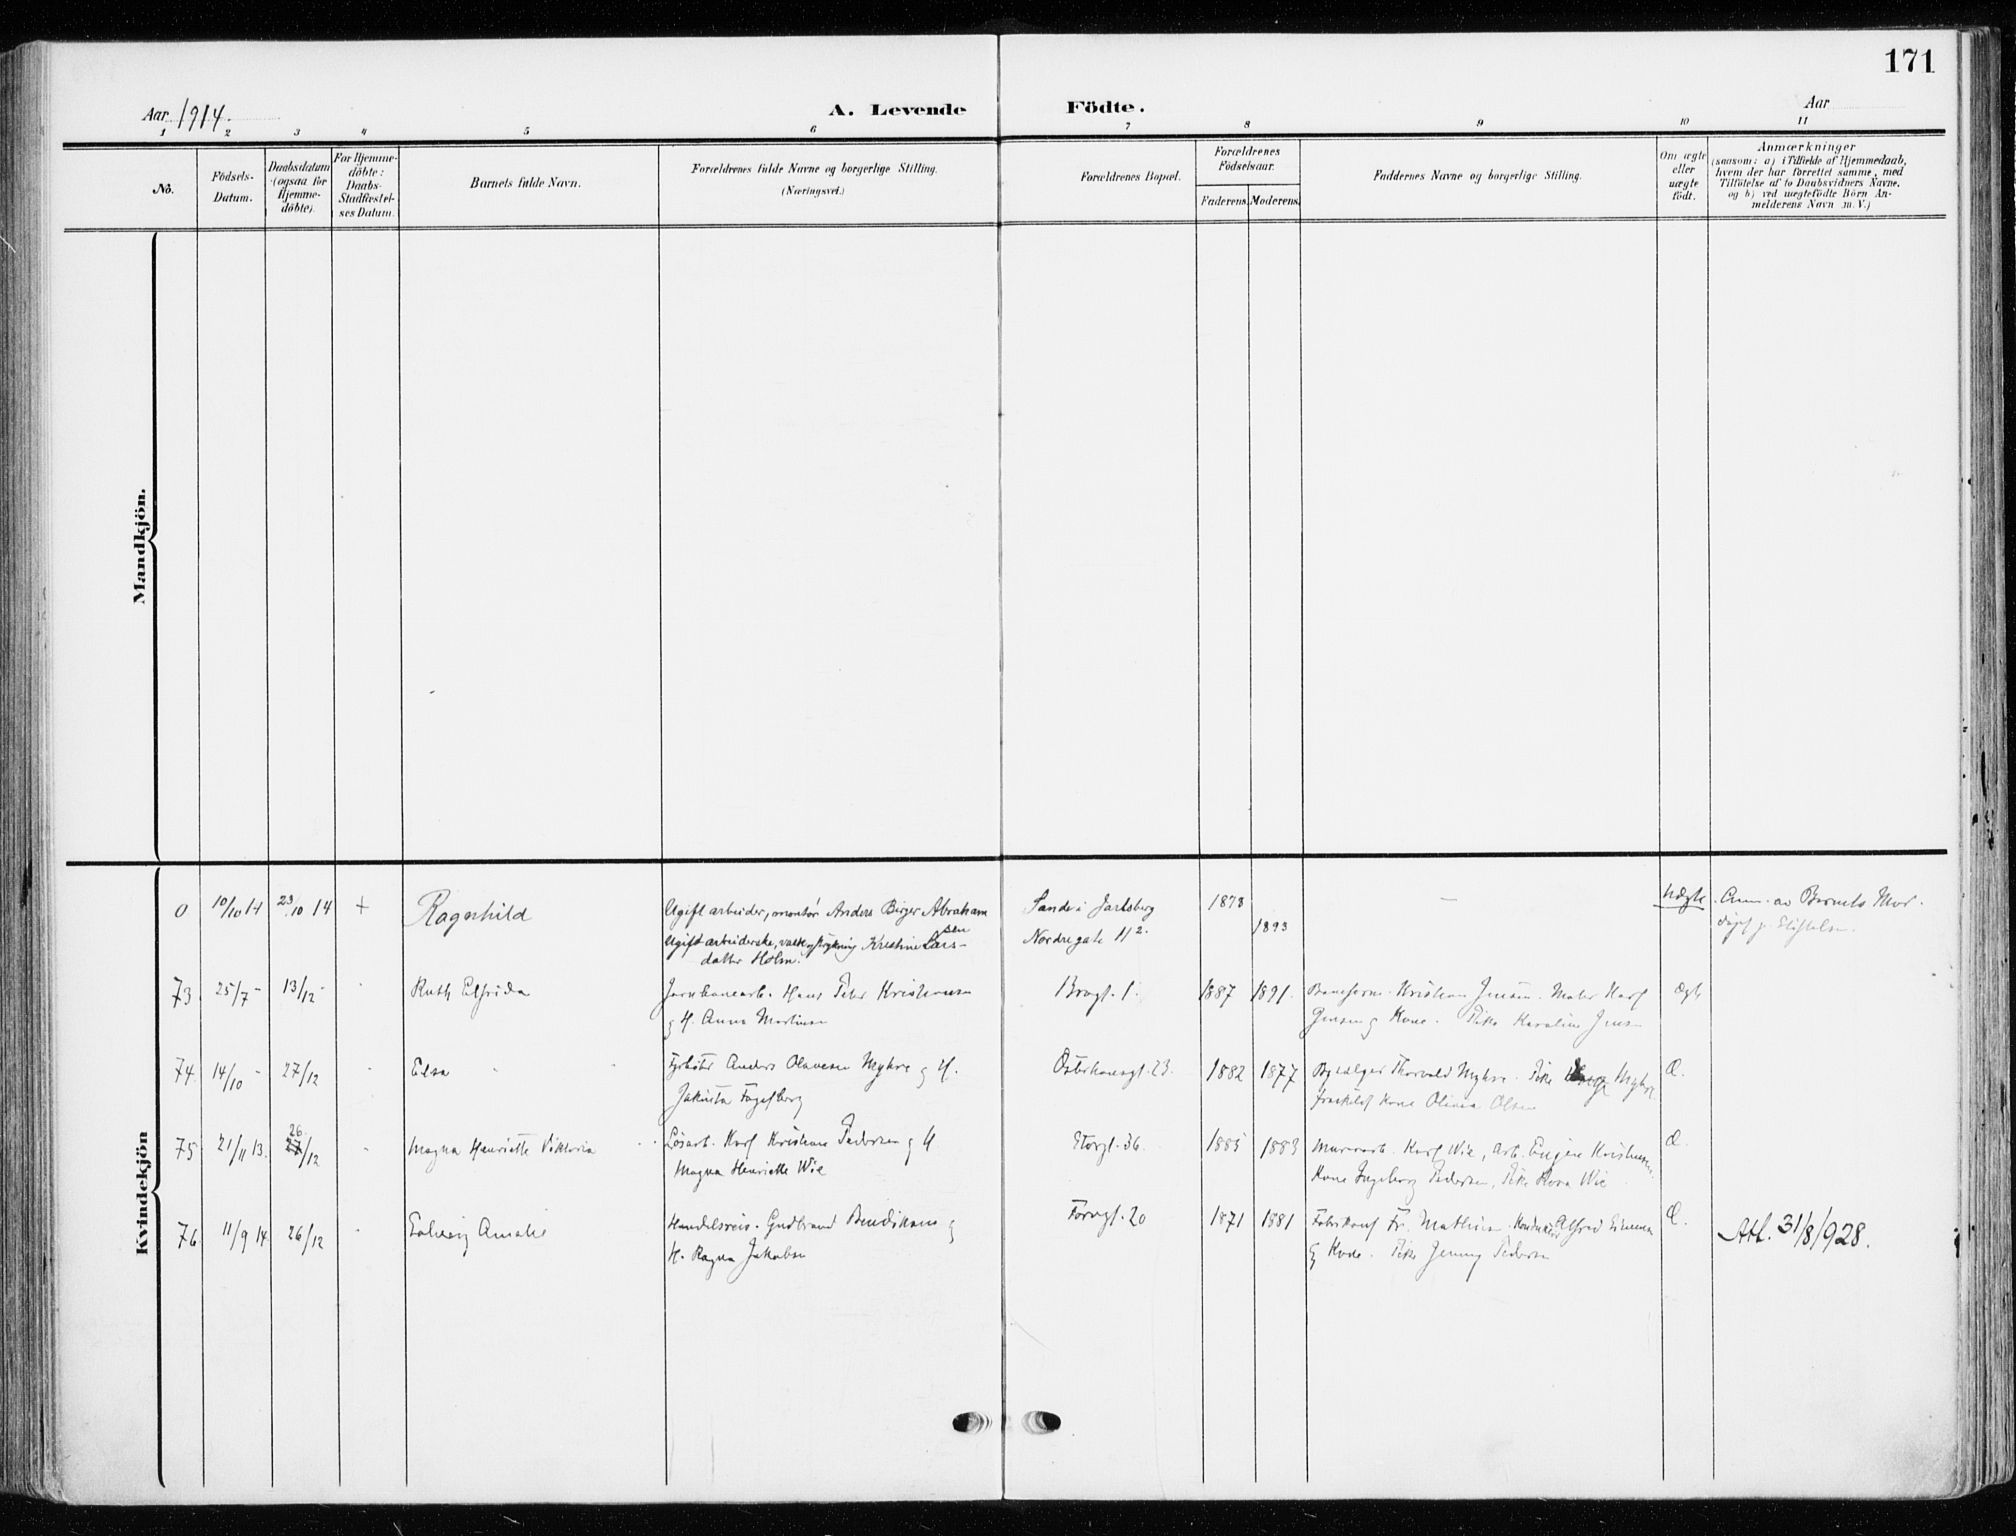 171
Aar 1914.
A. Levende Födte.
Aar
1 2 3 4 5 6 7 8 9 10 11
No.
Födsels-
Datum.
Daabsdatum
(ogsaa for
Hjemme-
döbte).
For Hjemme-
döbte:
Daabs-
Stadfæstel-
ses Datum.
Barnets fulde Navn.
Forældrenes fulde Navne og borgerlige Stilling.
(Næringsvei.)
Forældrenes Bopæl.
Forældrenes
Födselsaar.
Faderens. Moderens.
Faddernes Navne og borgerlige Stilling.
Om ægte
eller
uægte
födt.
Anmærkninger
(saasom: a) i Tilfælde af Hjemmedaab,
hvem der har forrettet samme, med
Tilföielse af to Daabsvidners Navne,
og b) ved uægtefödte Börn An-
melderens Navn m. V.)
Mandkjön.
Kvindekjön
0 10/10 14 23/10 14 + Ragnhild
Ugift arbeider, montör Anders Birger Abraham
sen
Ugift arbeiderske, vask og strykning Kristine Lars-
datter Holm.
Sande i Jarlsberg
Nordregate 11²
1873
1893
—
Uægte
Anm. av Barnets Mor.
73 25/7 - 13/12 - Ruth Elfrida
Jernbanearb. Hans Peter Kristiansen
og H. Anna Martinsen
Bragt. 1.
1887 1891.
Baneform. Kristian Jensen. Maler Karl
Jensen og Kone. Pike Karoline Jensen
Ægte
74. 14/10 - 27/12 - Elsa
Fyrböter Anders Olavesen Myhre og H.
Jakosta Fagelberg
Österhausgt. 23.
1882 1877
Thorvald Myhre. Pike Myhre
Kone Olivia Olsen
Æ.
75 21/11 13. 26 27/12 - Magna Henriette Viktoria
Lösarb. Karl Kristian Pedersen og H
Magna Henriette Wie
Storgt. 36.
1885 1883
Murerarb. Karl Wie, Arb. Eugen Kristiansen.
Kone Ingeborg Pedersen, Pike Kora Wie
Æ.
76 11/9 14. 26/12 - Solveig Amalie
Handelsreis. Gudbrand Bendiksen og
H. Ragna Jakobsen
Torvgt. 20
1871 1881
Fabrikant Fr. Mathisen. Konduktör Alfred Simensen
og Kone. Pike Jenny Pedersen
Æ.
Att. 31/8/928.